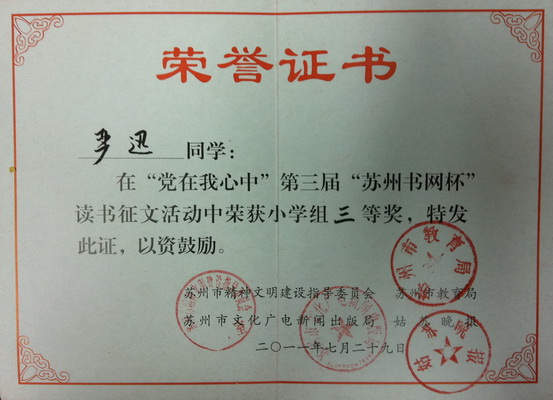 荣誉证书
严迅 同学:
在“党在我心中”第三届“苏州书网杯”
读书征文活动中荣获小学组三等奖，特发
此证，以资鼓励。
苏州市精神文明建设指导委员会 苏州市教育局
苏州市文化广电新闻出版局 姑苏晚报
二〇一一年七月二十九日
苏州市教育局
姑苏晚报